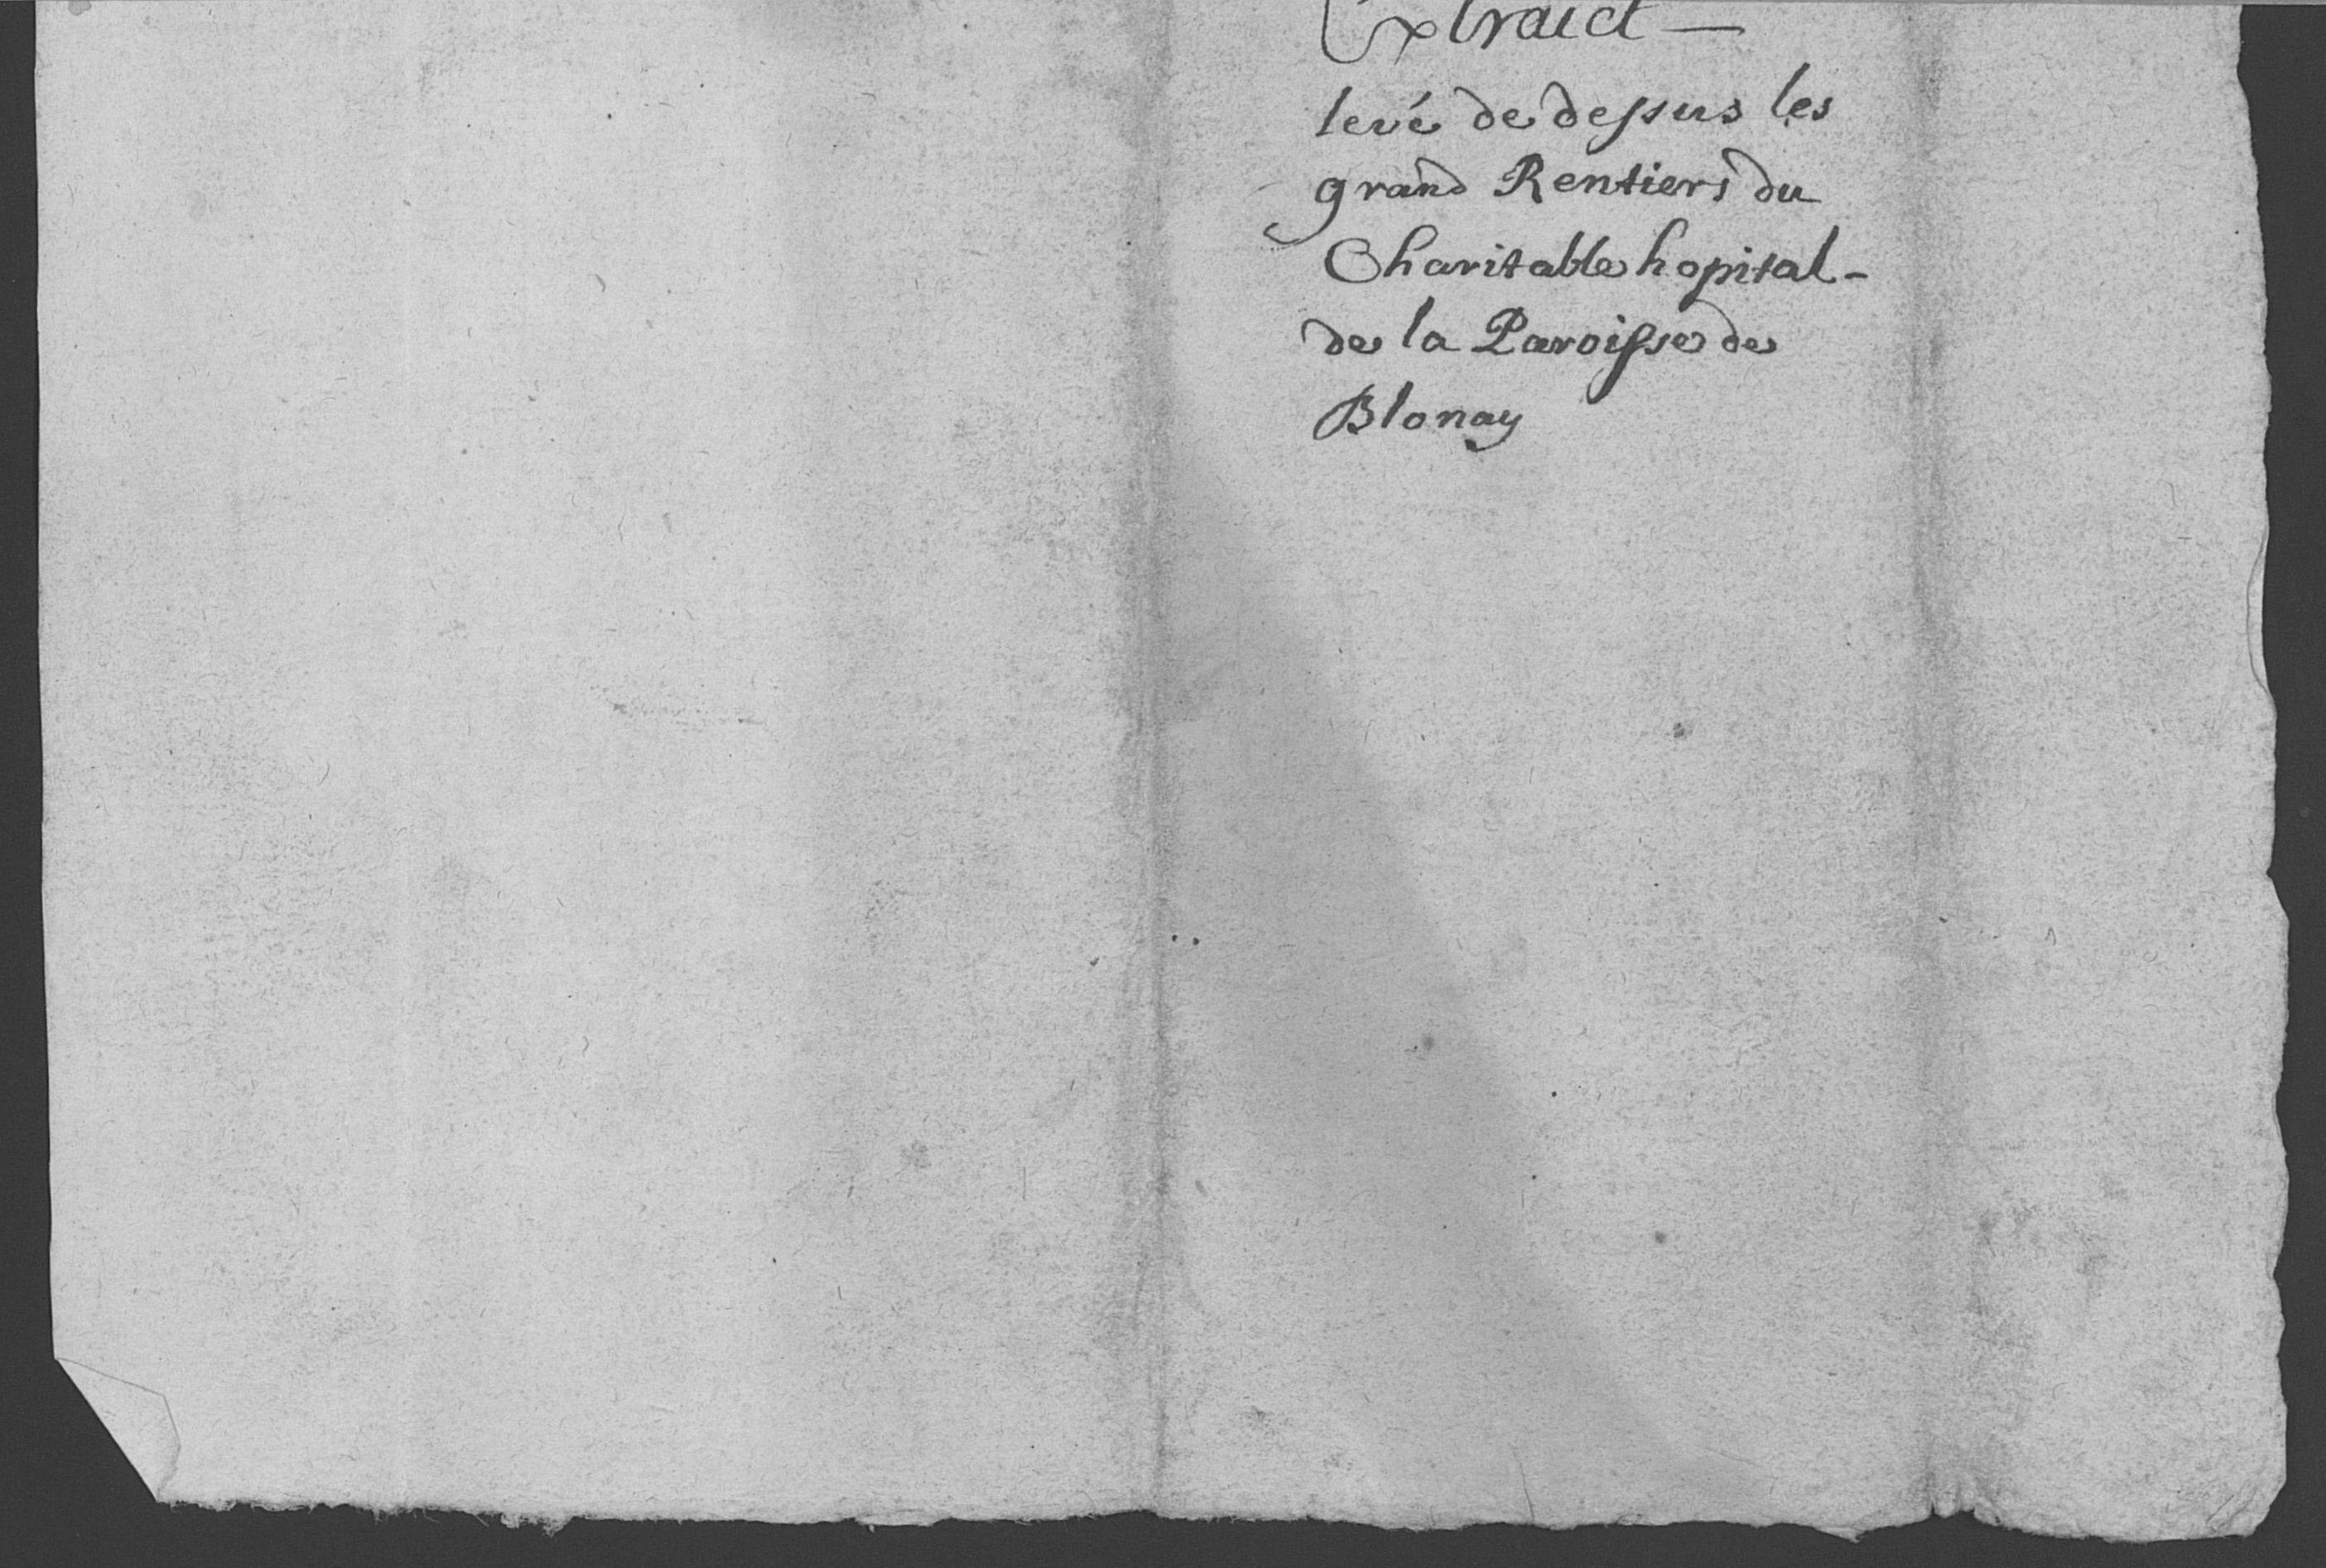 Extraict —
levé de dessus les
grand Rentiers du
Charitable hopital -
de la Paroisse de
Blonay